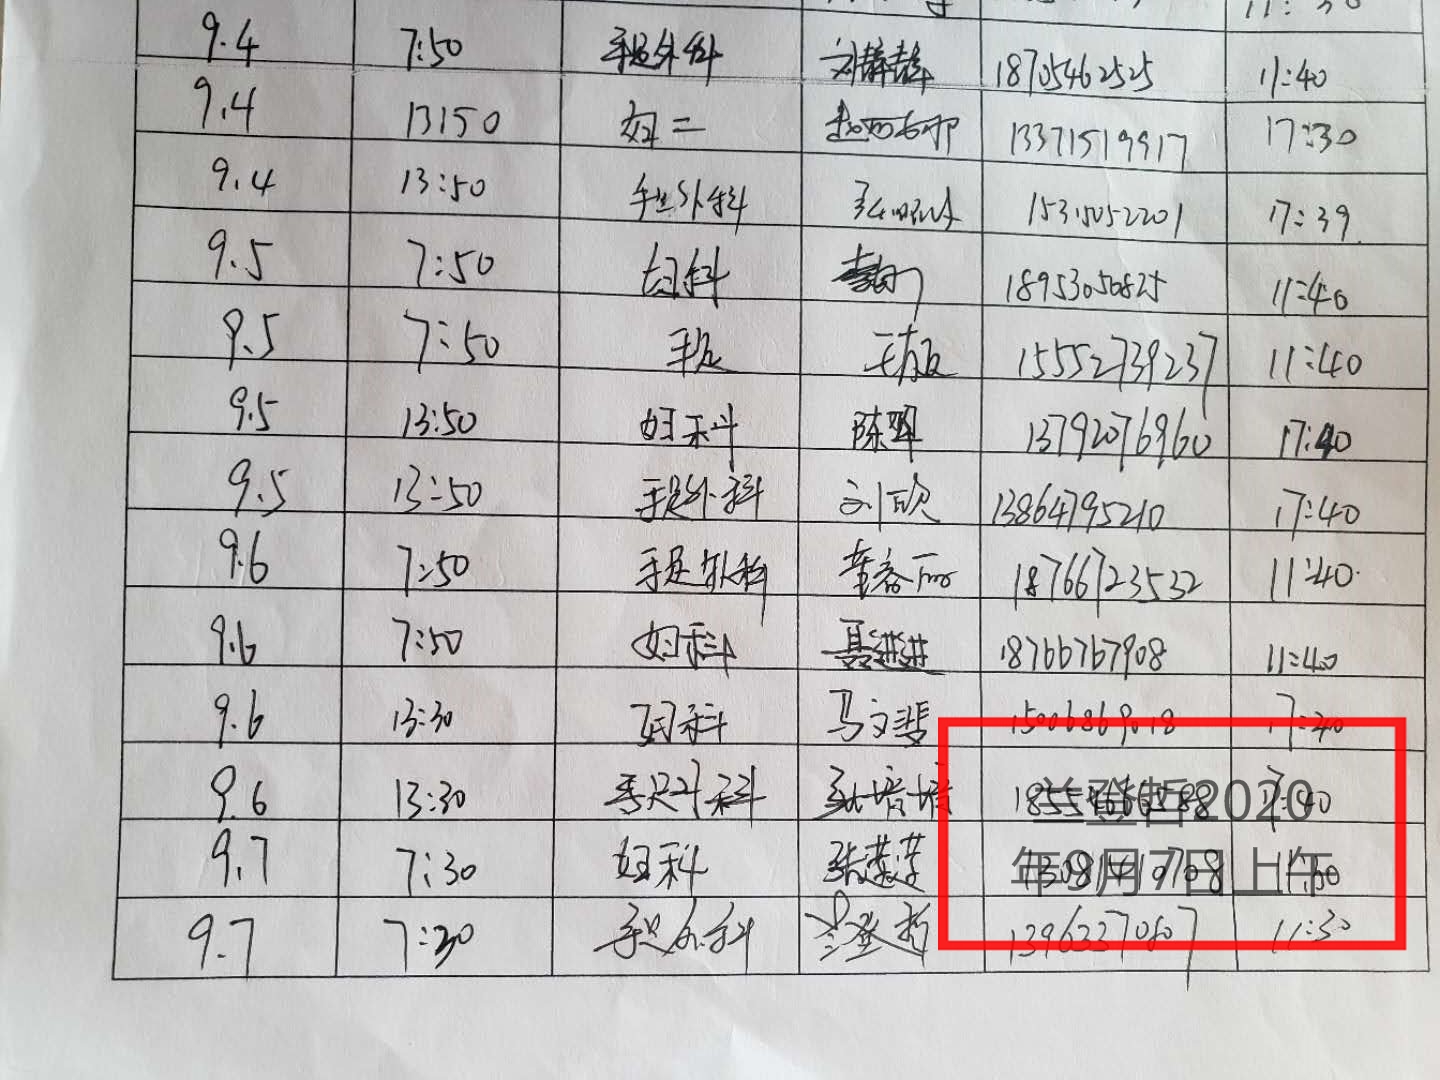 9.4 7:50 手足外科 刘静静 18705462525 11:40
9.4 13:50 妇二 13371519917 17:30
9.4 13:50 手足外科 15315052201 17:39
9.5 7:50 妇科 18953050825 11:40
9.5 7:50 手足 15552739237 11:40
9.5 13:50 妇科 陈翠 13792076960 17:40
9.5 13:50 手足外科 刘欣 13864795210 17:40
9.6 7:50 手足外科 18766723532 11:40
9.6 7:50 妇科 聂进进 18766767908 11:40
9.6 13:30 妇科 马文斐 15006869018 17:40
9.6 13:30 手足外科 孙培培 17:40
兰登哲2020
9.7 7:30 妇科 张莲莲 11:30
年9月7日上午
9.7 7:30 手足外科 兰登哲 13963370807 11:30